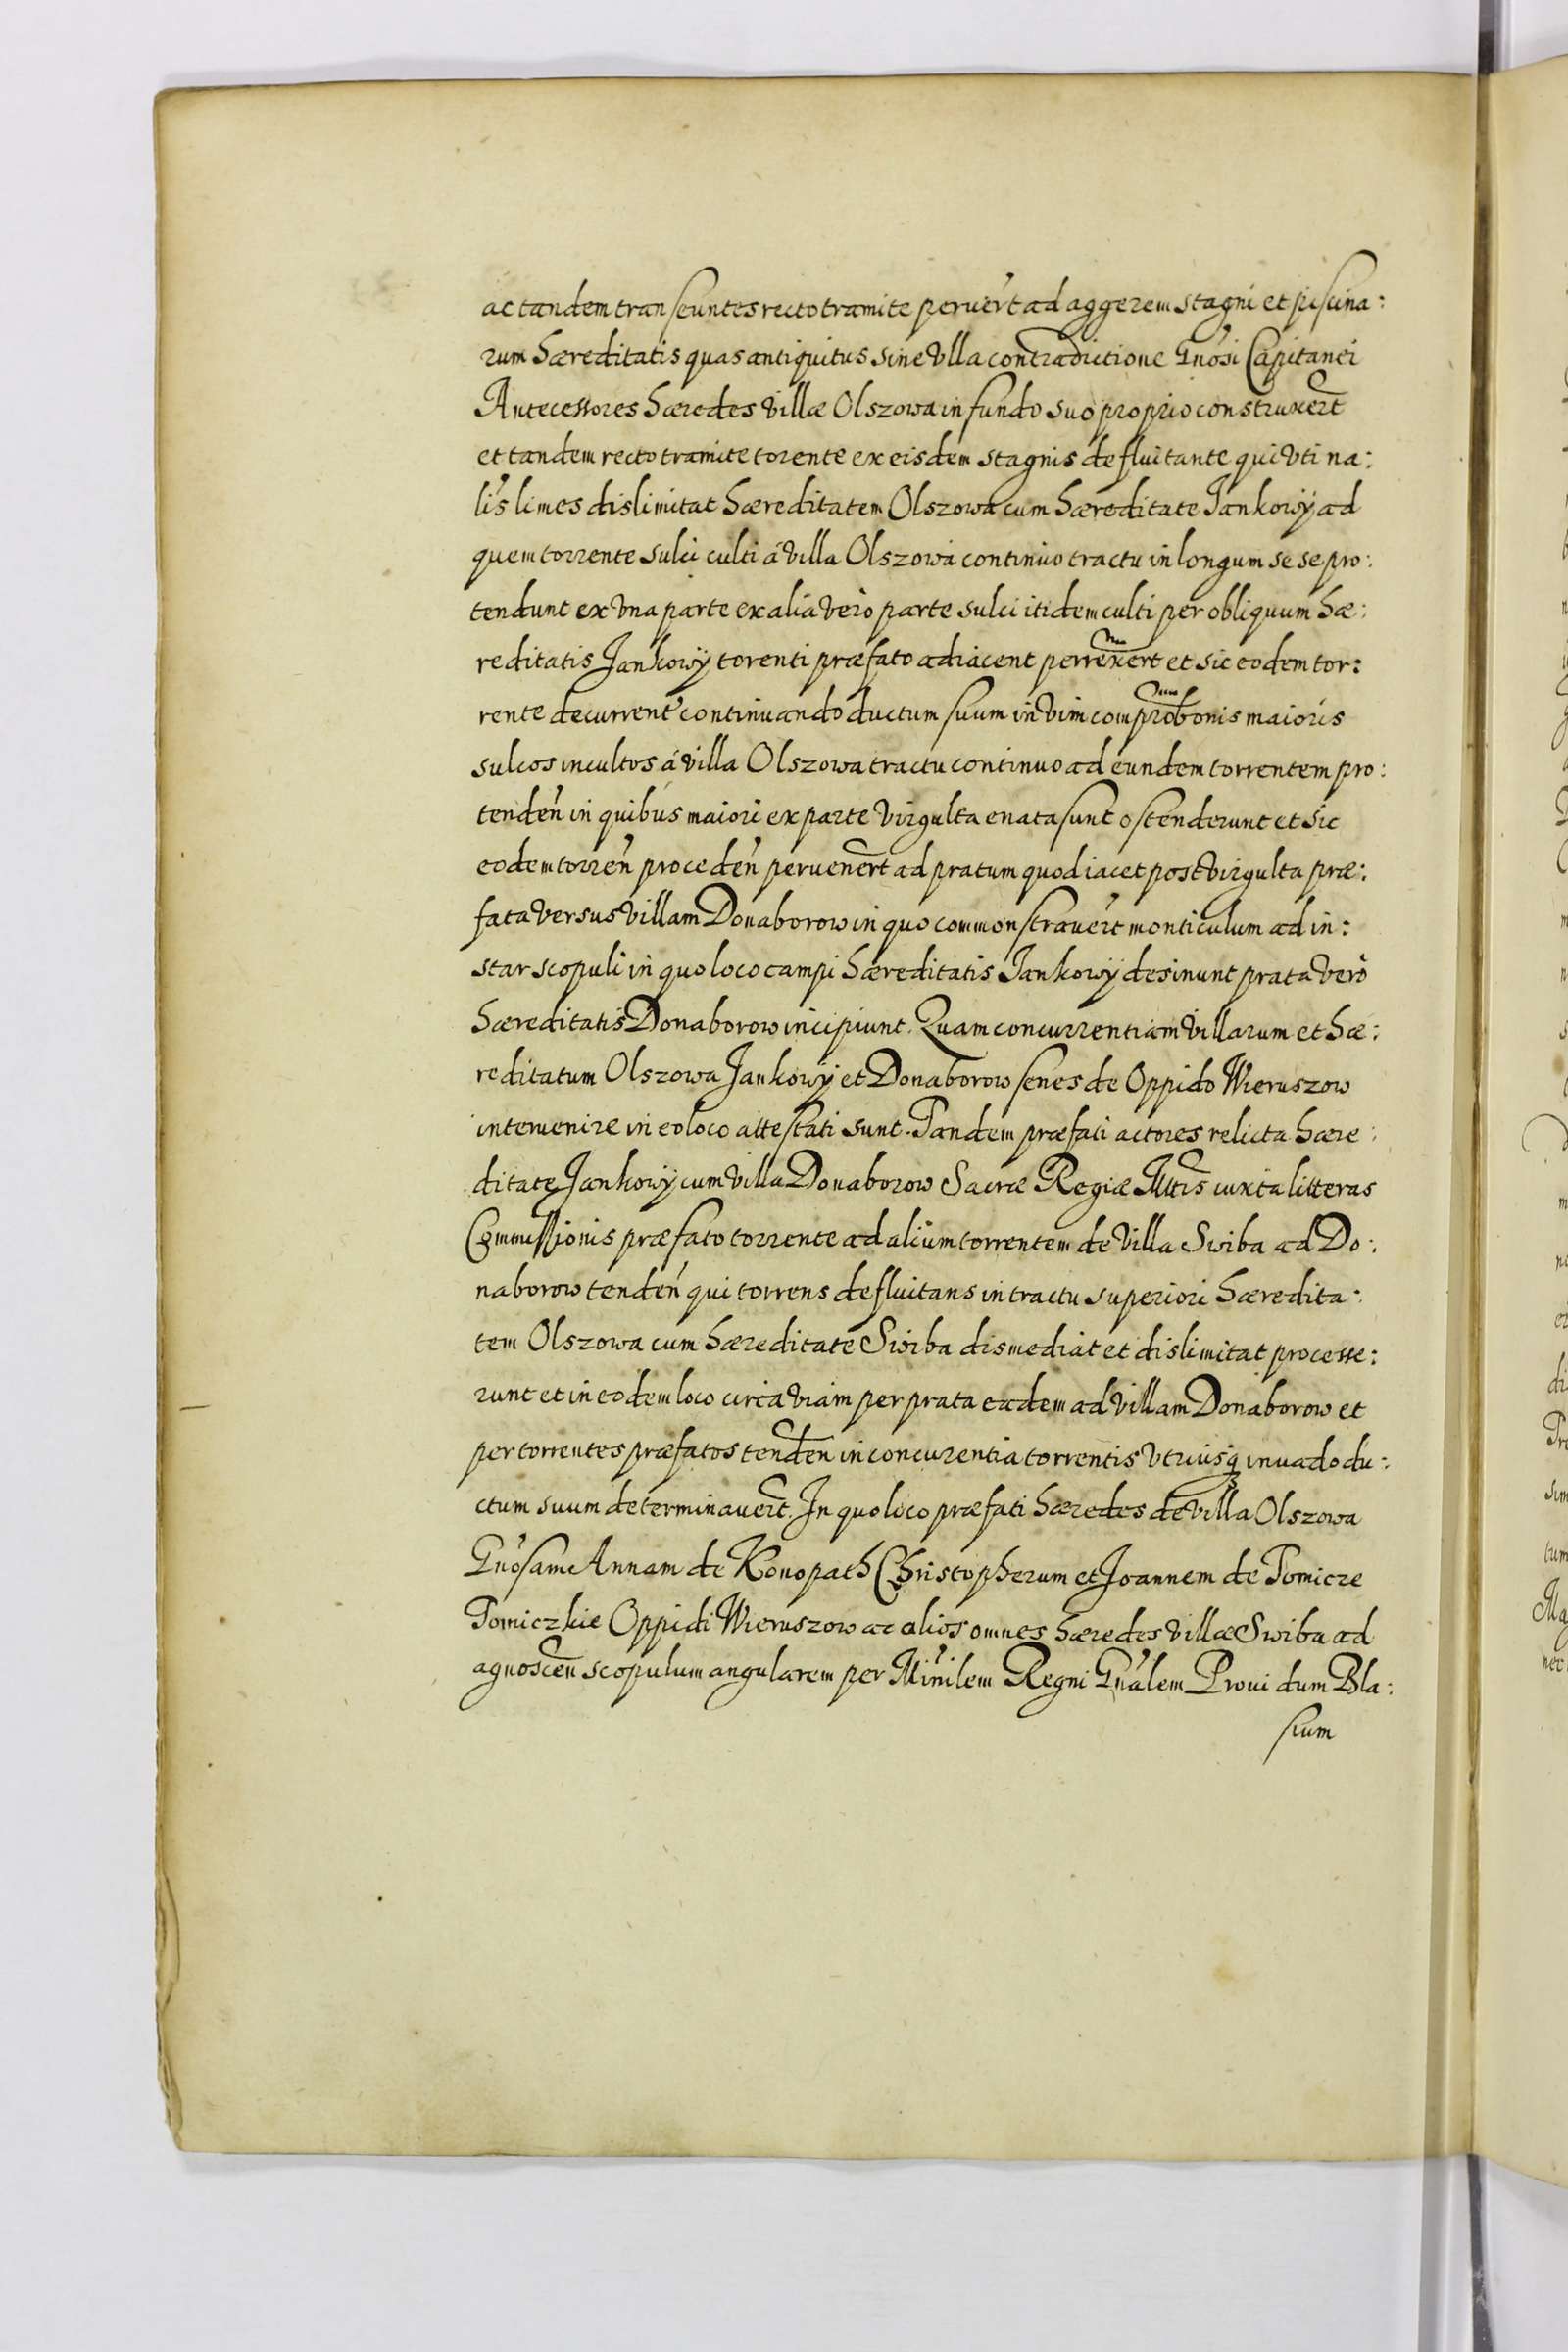 ac tandem transeuntes recto tramite peruert ad aggerem stagni et piscina:
rum hæreditatis quas antiquitus sine vlla contradictione Gnosi Capitanei
Antecessores hæredes villæ Olszowa in fundo suo proprio construxert
et tandem recto tramite torente ex eisdem stagnis defluitante qui vti na:
lis limes dislimitat hæreditatem Olszowa cum hæreditate Jankowÿ ad
quem torrente sulci culti á villa Olszowa continuo tractu in longum se se pro:
tendunt ex vna parte ex alia verò parte sulci itidem culti per obliquum hæ:
reditatis Jankowÿ torenti præfato adiacent perrexert et sic eodem tor:
rente decurrent continuando ductum suum in vim comprobonis maioris
sulcos incultos á villa Olszowa tractu continuo ad eundem torrentem pro:
tenden in quibus maiori ex parte virgulta enata sunt ostenderunt et sic
eodem torren proceden peruenert ad pratum quod iacet post virgulta præ:
fata versus villam Donaborow in quo commonstrauert monticulum ad in:
star scopuli in quo loco campi hæreditatis Jankowÿ desinunt prata verò
hæreditatis Donaborow incipiunt. Quam concurrentiam villarum et hæ:
reditatum Olszowa Jankowÿ et Donaborow senes de Oppido Wieruszow
interuenire in eo loco attestati sunt. Tandem præfati actores relicta hære:
ditate Jankowÿ cum villa Donaborow Sacræ Regiæ Mttis iuxta litteras
Commissionis præfato torrente ad alium torrentem de villa Swiba ad Do:
naborow tenden qui torrens defluitans in tractu superiori hæredita:
tem Olszowa cum hæreditate Swiba dismediat et dislimitat processe:
runt et in eodem loco circa viam per prata eadem ad villam Donaborow et
per torrentes præfatos tenden in concurentia torrentis vtriusq in vado du:
ctum suum determinauert. In quo loco præfati hæredes de villa Olszowa
Gnosam Annam de Konopath Christopherum et Joannem de Tomicze
Tomiczkie Oppidi Wieruszow ac alios omnes hæredes villæ Swiba ad
agnoscen scopulum angularem per Minilem Regni Gnalem Prouidum Bla:
sium